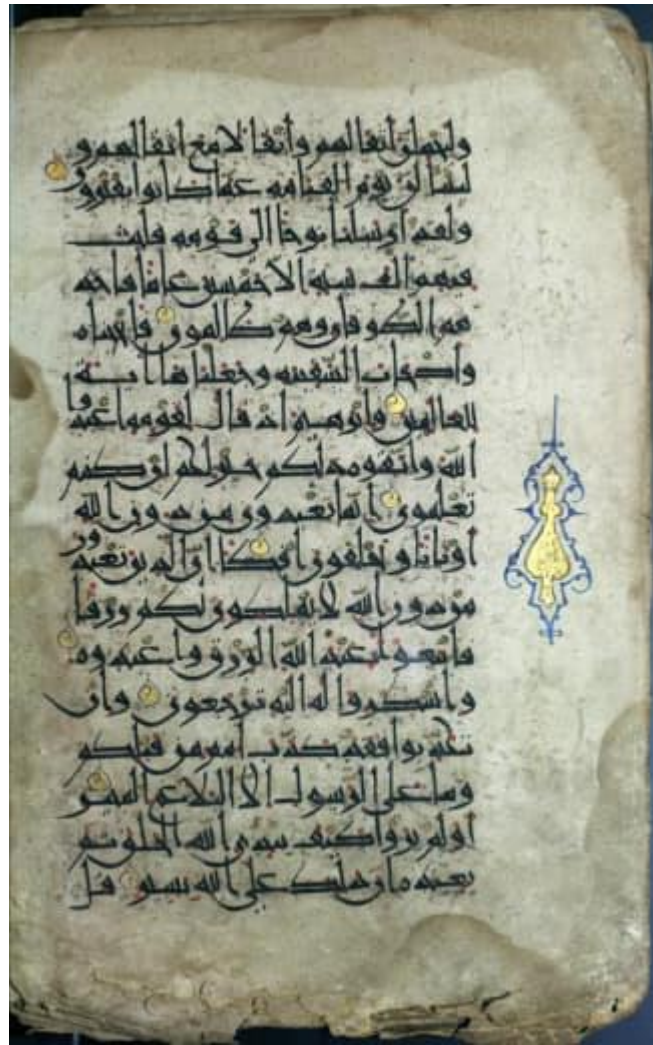 وليحملن أثقالهم وأثقالا مع أثقالهم و
ليسألن يوم القيامة عما كانوا يفترون
ولقد أرسلنا نوحا إلى قومه فلبث
فيهم ألف سنة إلا خمسين عاما فأخذ
هم الطوفان وهم ظالمون فأنجيناه
وأصحاب السفينة وجعلناها آية
للعالمين وإبرهيم إذ قال لقومه اعبدوا
الله واتقوه ذلكم خير لكم إن كنتم
تعلمون إنما تعبدون من دون الله
أوثانا وتخلقون إفكا إن الذين تعبدون
من دون الله لا يملكون لكم رزقا
فابتغوا عند الله الرزق واعبدوه
واشكروا له إليه ترجعون وإن
تكذبوا فقد كذب أمم من قبلكم
وما على الرسول إلا البلاغ المبين
أولم يروا كيف يبدئ الله الخلق ثم
يعيده إن ذلك على الله يسير قل